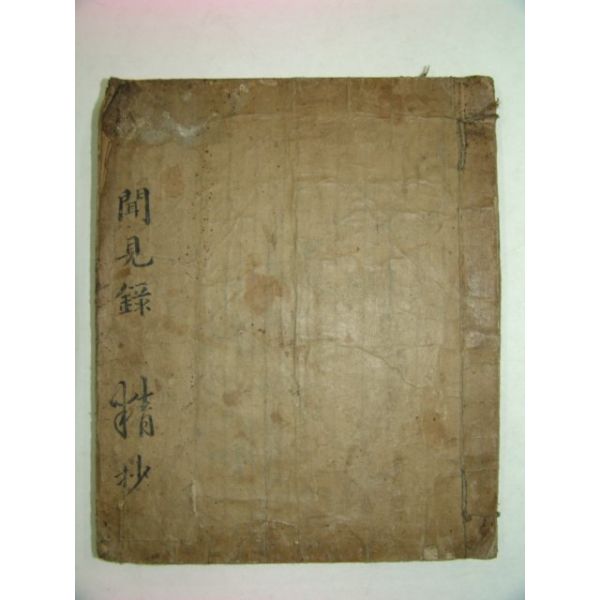 聞見錄 精抄